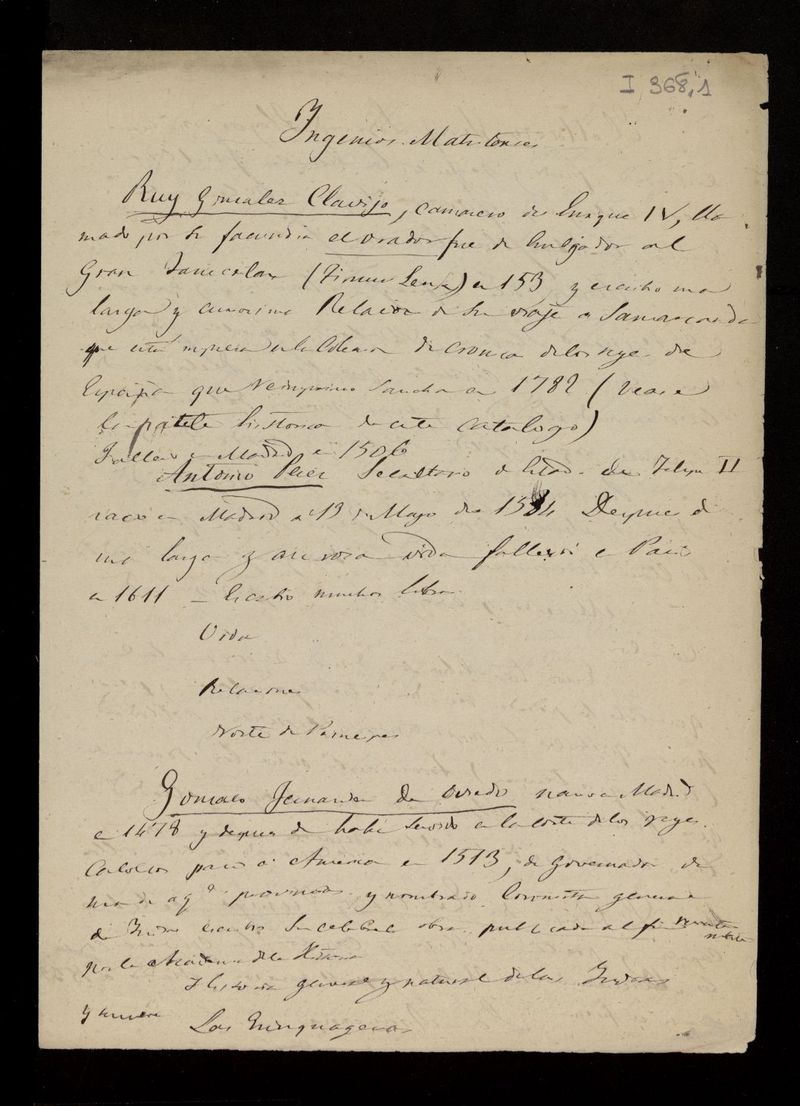 I 368,1
Ingenios Matritenses
Ruy Gonzalez Clavijo, camarero de Enrique IV, lla
mado por su facundia el orador fue de embajador al
Gran Tamerlan (Timur Lenk) en 153 y escribio una
larga y curiosisima Relacion de su viaje a Samarcanda
que está impresa en la Coleccion de cronicas de los reyes de
España que Sancha en 1782 (vease
la parte historica de este catalogo)
Fallecio en Madrid en 1506
Antonio Perez Secretario de Estado de Felipe II
nacio en Madrid a 13 de Mayo de Despues de
una larga y vida fallecio en Paris
en 1611 – Escribio muchos libros
Vida
Relaciones
Norte de Principes
Gonzalo Fernandez de Oviedo nacio en Madrid
en 1478 y despues de haber servido en la corte de los reyes
Catolicos paso a America en 1513, de Governador de
una de aqs provincias y nombrado Coronista general
de Indias escribio su celebre obra publicada al fin
por la Academia de la Historia
Historia general y natural de las Indias
Las Quinquagenas